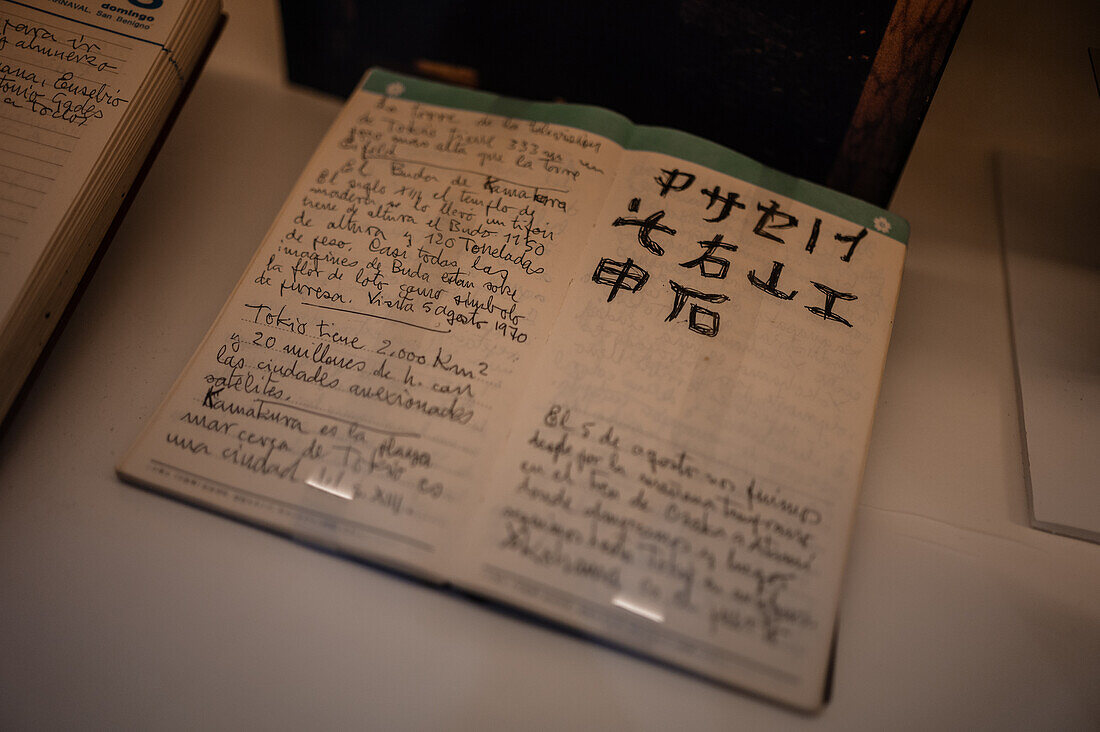 domingo
CARNAVAL. San Benigno
para ir
y almuerzo
Eusebio
Gades
a todos
La torre de la television
de Tokio tiene 333 ms. un
poco mas alta que la torre
Eifel
El Buda de Kamakura
El siglo XIII el templo de
madera se lo llevó un tifón
tiene de altura el Buda 11'50
de altura y 120 Toneladas
de peso. Casi todas las
imagines de Buda estan sobre
la flor de loto como simbolo
de pureza. Visita 5 agosto 1970
Tokio tiene 2.000 Km2
y 20 millones de h. con
las ciudades anexionadas
satélites.
Kamakura es la playa
mar cerca de Tokio es
una ciudad del s. XIII.
サ セ ト イ
七 右 山 工
申 石
El 5 de agosto nos fuimos
desde por la mañana temprano
en el tren de Osaka a Atami
donde y luego